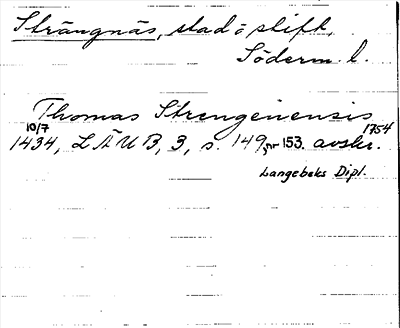 Strängnäs, stad o stift,
Söderm. l.
Thomas Strengenensis
10/7 1754
1434, LÄUB, 3, s. 149, nr 153. avskr.
Langebeks Dipl.